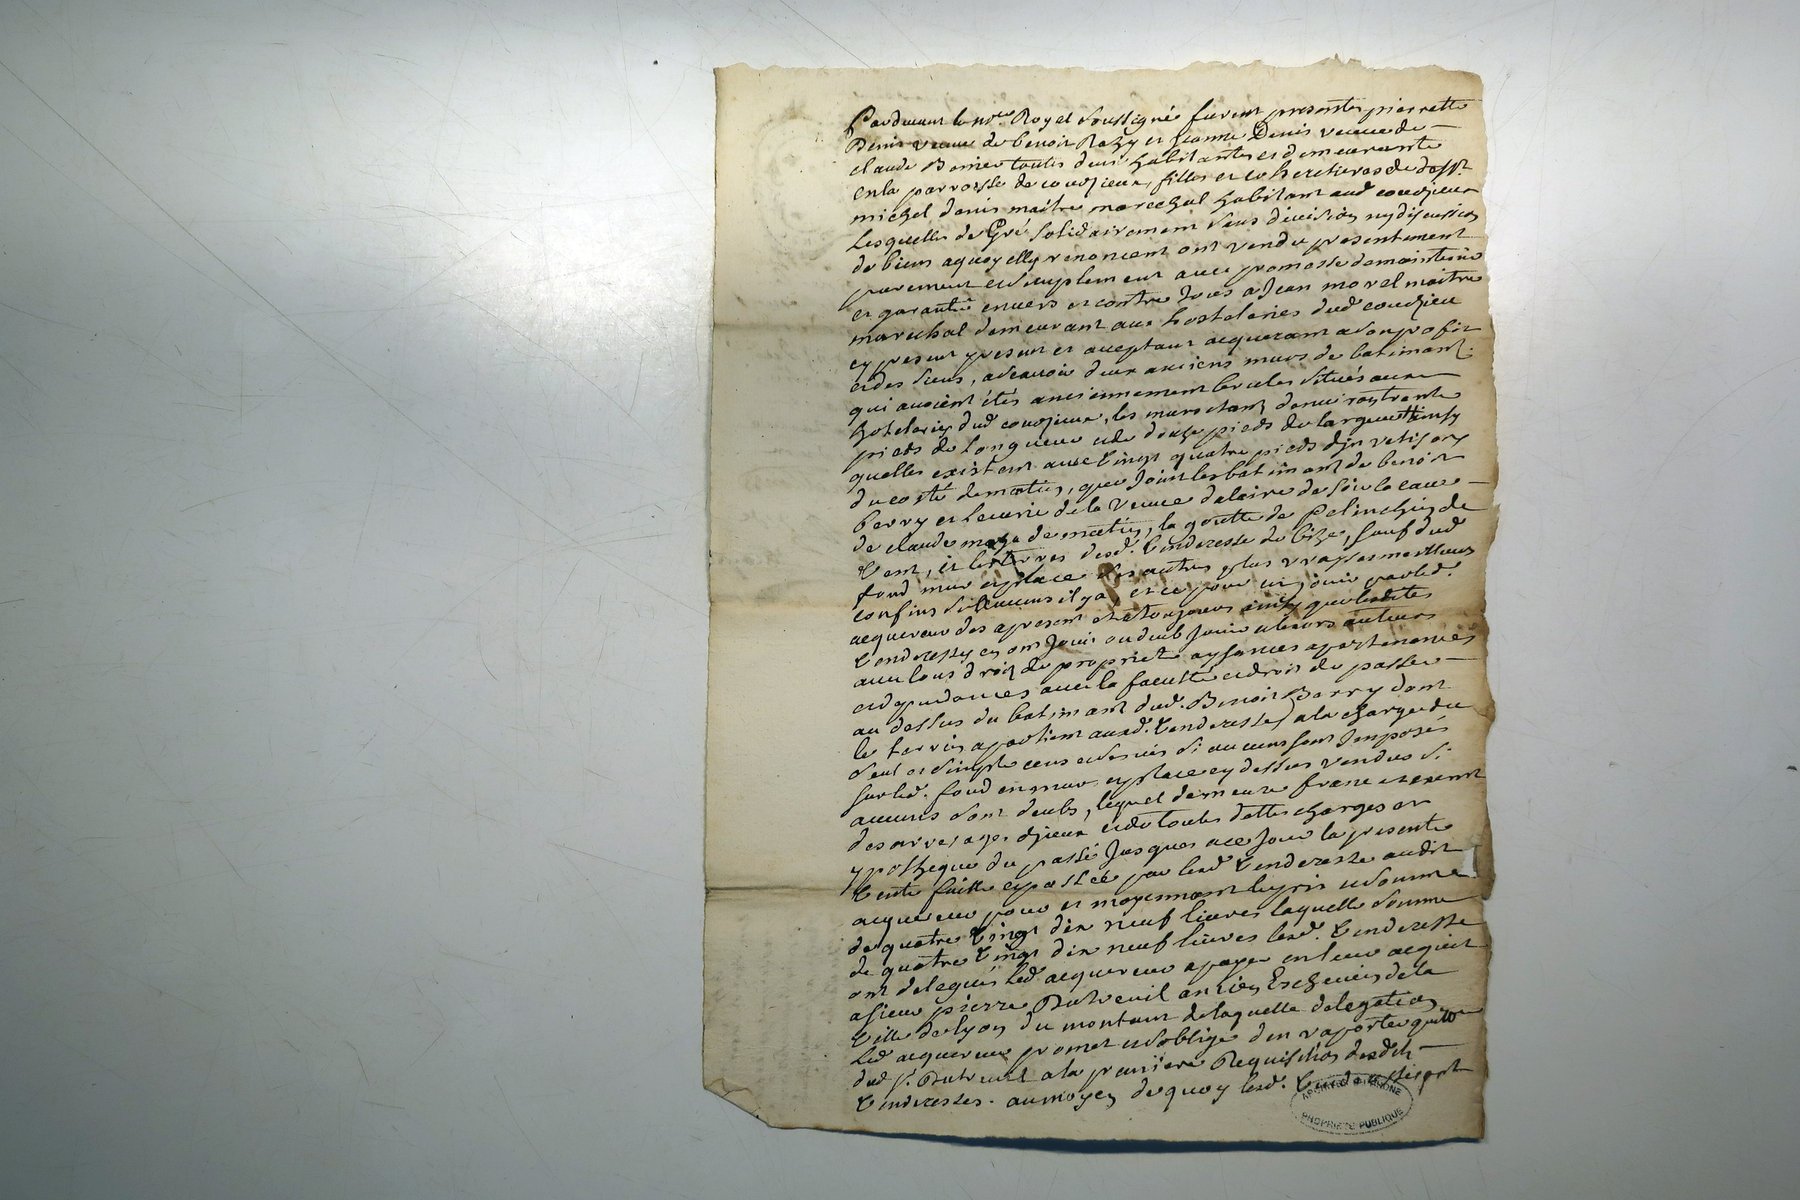 Pardevant le nore Royal soussigné furent presentes pierrette
Denis veuve de benoit Razy et Jeanne Denis veuve de
claude Bonier toutes deux habitantes et demeurante
en la parroisse de couzieux, filles et coheritieres de defft
michel denis maitre marechal habitant aud couzieux
Lesquelles de Gré solidairement sans division ny discussion
de biens aquoy elles renoncent ont vendu presentement
purement et simplement avec promesse de maintenir
et garantir envers et contre tous a Jean morel maitre
marechal demeurant aux hosteleries dud couzieu
cy present present et acceptant acquerant a son profit
et des siens, ascavoir deux anciens murs de batimant
qui avoient étés anciennement brulés situés aux
hoteleries dud couzieux, les murs etant denviron trente
pieds de longueur et de douze pieds de largeur ainsy
quelles existent avec vingt quatre pieds
du costé de matin, que joint les batimant de benoit
berry et lecurie de la veuve de soir le
de claude de matin, la goutte de de
vent, et les terres desd. venderesse de bize, sauf dud
fond mur et place les autres plus vrays et meilleurs
confins si aucuns il y a, et ce pour en jouir par led.
acquereur des apresent et a toujours ainsy que lesdites
venderesses en ont joui ou deub jouir et leurs auteurs
avec tous droits de proprieté aysances apartenances
et dependances avec la faculté et droit de passer
au dessus du batimant dud. Benoit Berry dont
le terrin apartient auxd. venderesses, a la charge du
seul et simple cens et servis si aucuns sont imposés
sur led. fond en murs et place cy dessus vendus si
aucuns sont deubs, lequel demeure franc et exempt
des arrerages diceux et de toutes dettes charges et
ypotheque du passé Jusques a ce Jour la presente
vente faitte et passée par lesd venderesse audit
acquereur pour et moyennant le prix et somme
de quatre vingt dix neuf livres laquelle somme
de quatre vingt dix neuf livres lesd. venderesse
ont delegués led acquereur a payer en leur acquit
a sieur pierre Dutreuil ancien Eschevin de la
ville de lyon du montant de laquelle delegation
led acquereur promet et soblige den raporter quittce
dud sr. Dutreuil a la premiere Requisition desdits
venderesses. au moyen de quoy lesd. venderesses ont
ARCHIVES DU RHONE
PROPRIÉTÉ PUBLIQUE